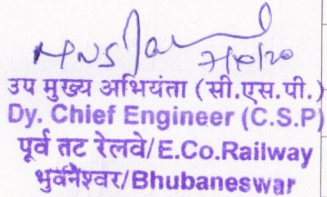 7/10/20
उप मुख्य अभियंता (सी.एस.पी.)
Dy. Chief Engineer (C.S.P)
पूर्व तट रेलवे/E.Co.Railway
भुवनेश्वर/Bhubaneswar